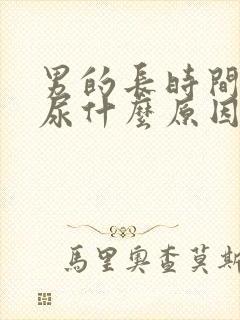 男的長時間
尿什麼原因
馬里奧查莫斯